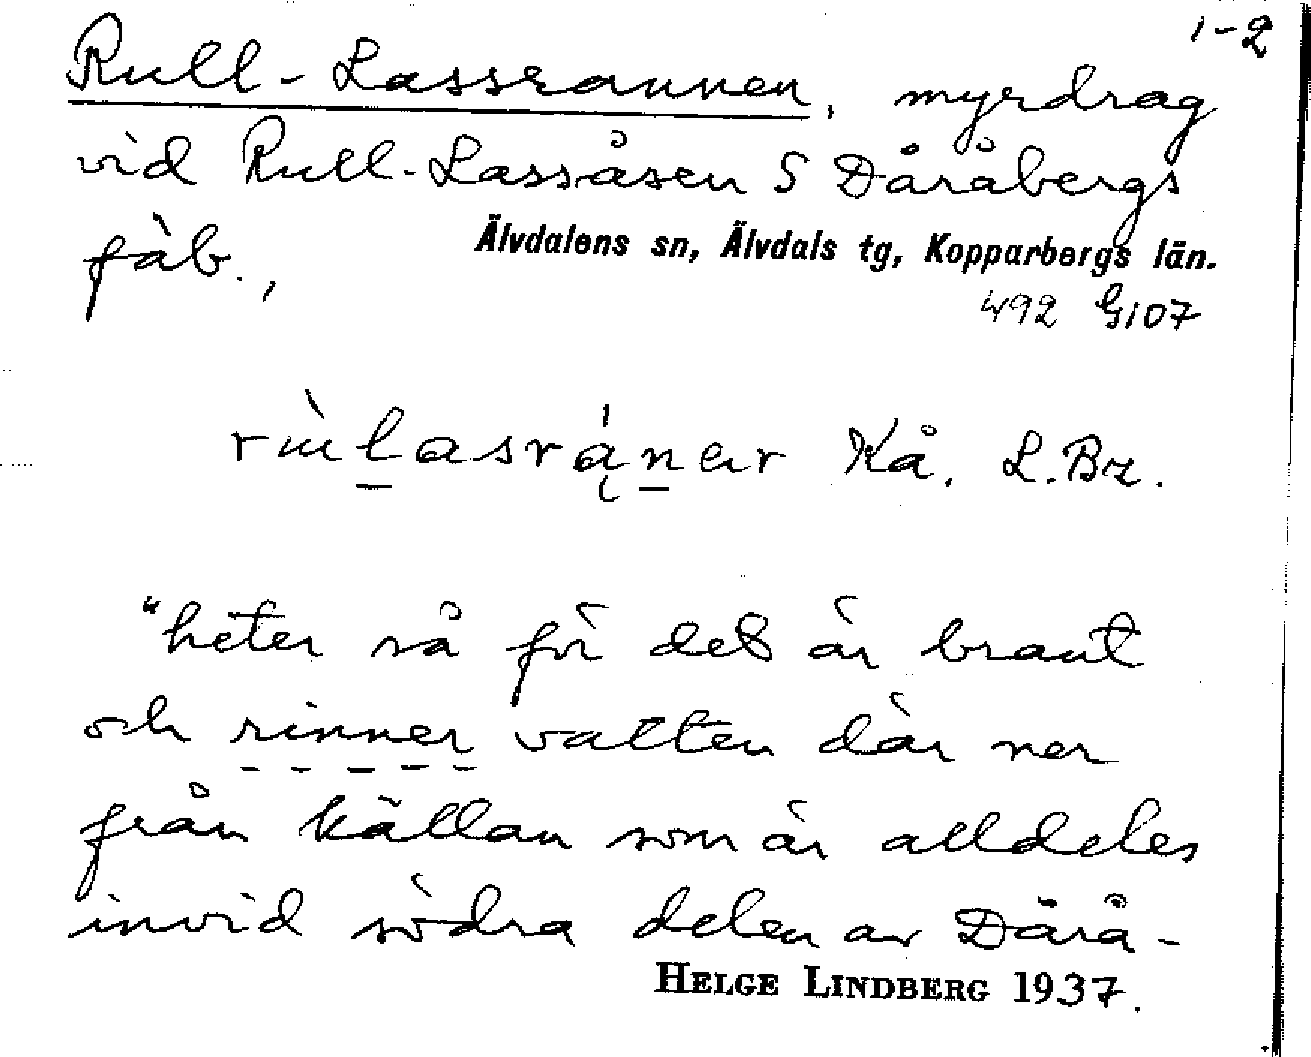 1-2
Rull-Lassrannen, myrdrag
vid Rull-Lassåsen S Dåråbergs
fäb.,
Älvdalens sn, Älvdals tg, Kopparbergs län.
492 G107
Kå. L.Bz.
"heter så för det är brant
och rinner vatten där ner
från källan som är alldeles
invid södra delen av Dårå-
HELGE LINDBERG 1937.